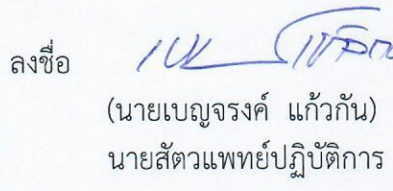 ลงชื่อ
(นายเบญจรงค์ แก้วกัน)
นายสัตวแพทย์ปฏิบัติการ